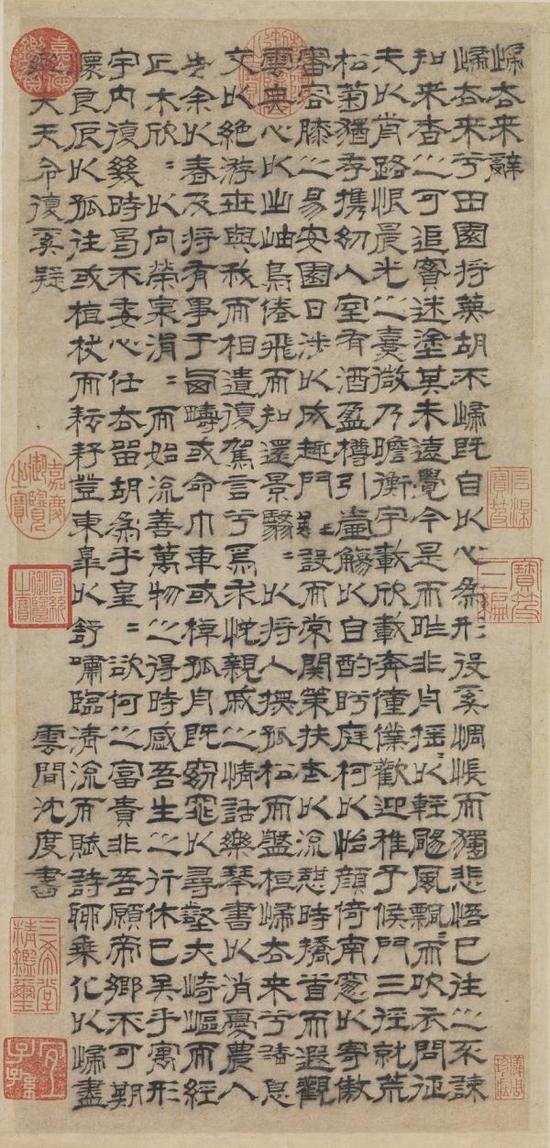 歸去來辭
歸去來兮田園將蕪胡不歸既自以心為形役奚惆悵而獨悲悟已往之不諫
知來者之可追實迷塗其未遠覺今是而昨非舟搖以輕颺風飄而吹衣問征
夫以前路恨晨光之熹微乃瞻衡宇載欣載奔僮僕歡迎稚子候門三徑就荒
松菊猶存攜幼入室有酒盈樽引壺觴以自酌眄庭柯以怡顏倚南窻以寄傲
審容膝之易安園日涉以成趣門雖設而常關策扶老以流憩時矯首而遐觀
雲無心以出岫鳥倦飛而知還景翳〻以將入撫孤松而盤桓歸去來兮請息
交以絕游世與我而相遺復駕言兮焉求悅親戚之情話樂琴書以消憂農人
告余以春及將有事于西疇或命巾車或棹孤舟既窈窕以尋壑亦崎嶇而經
丘木欣〻以向榮泉涓〻而始流善萬物之得時感吾生之行休已矣乎寓形
宇內復幾時曷不委心任去留胡為乎皇〻欲何之富貴非吾願帝鄉不可期
懷良辰以孤往或植杖而耘耔登東皋以舒嘯臨清流而賦詩聊乘化以歸盡
樂夫天命復奚疑
雲間沈度書
嘉慶御覽之寶
宣統御覽之寶
三希堂精鑑璽
宜子孫
寶笈三編
嘉慶鑑賞